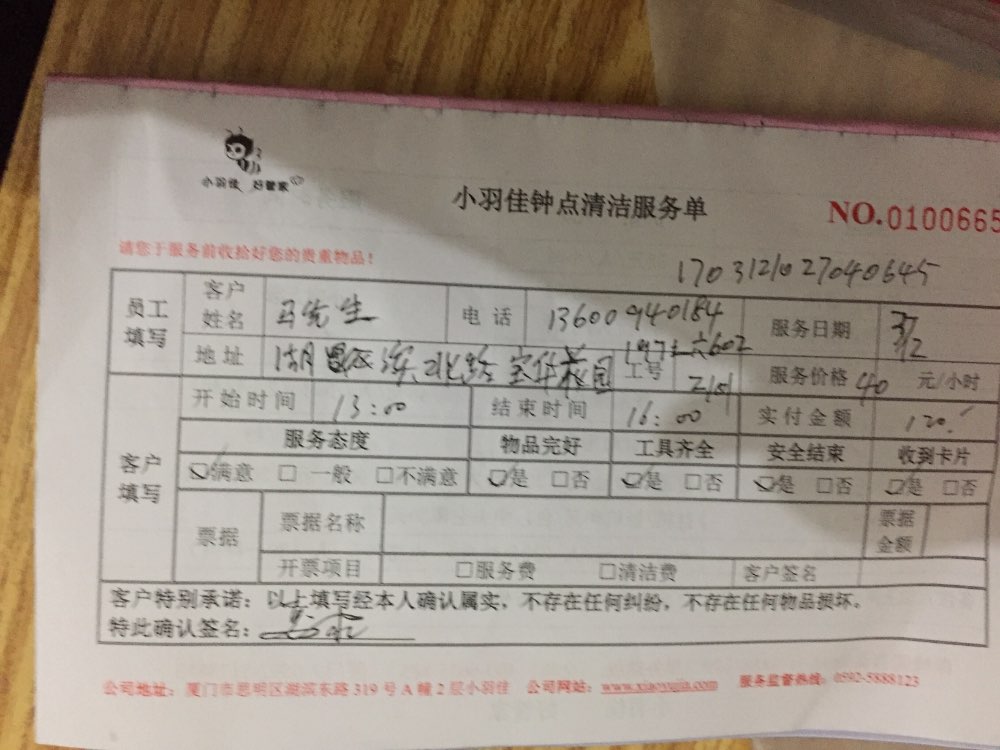 小羽佳 好管家
小羽佳钟点清洁服务单
NO.0100665
请您于服务前收拾好您的贵重物品!
1703121027040645
员工填写 客户姓名 马先生 电话 13600940184 服务日期 3/12
地址 湖滨北路宝华花园 602 工号 2101 服务价格 40 元/小时
客户填写 开始时间 13:00 结束时间 16:00 实付金额 120.
服务态度 物品完好 工具齐全 安全结束 收到卡片
☑满意 □一般 □不满意 ☑是 □否 ☑是 □否 ☑是 □否 ☑是 □否
票据 票据名称 票据金额
开票项目 □服务费 □清洁费 客户签名
客户特别承诺:以上填写经本人确认属实,不存在任何纠纷,不存在任何物品损坏。
特此确认签名:
公司地址:厦门市思明区湖滨东路 319 号 A 幢 2 层小羽佳 公司网站:www.xiaoyujia.com 服务监督热线:0592-5888123